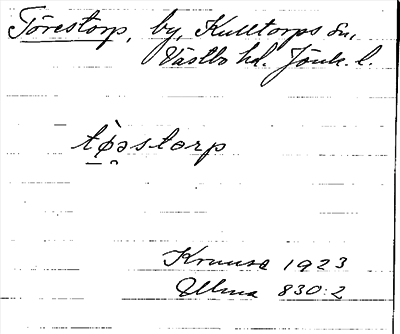 Törestorp, by, Kulltorps sn,
Västbo hd. Jönk. l.
tø̀əstorp
Kruuse 1923
Ulma 830:2